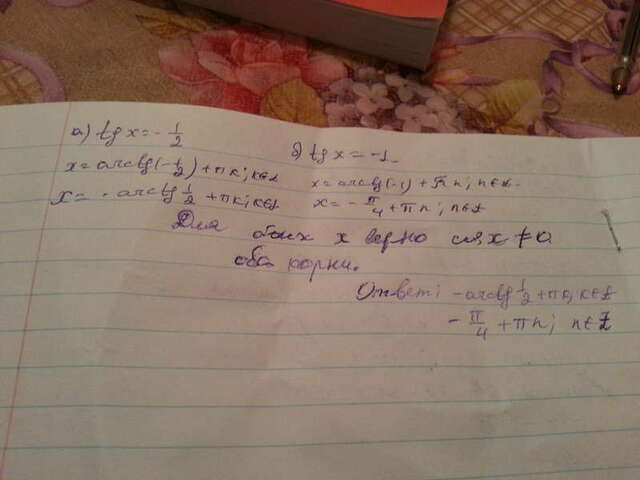 а) tg x = -1/2
x = arctg(-1/2) + πk; k∈Z
x = -arctg 1/2 + πk; k∈Z
б) tg x = -1
x = arctg(-1) + πn; n∈Z
x = -π/4 + πn; n∈Z
Для обоих x верно cos x ≠ 0
оба корни.
Ответ: -arctg 1/2 + πk, k∈Z
-π/4 + πn; n∈Z